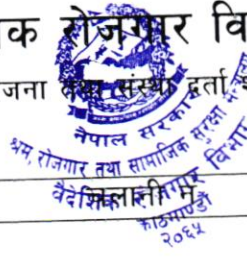 क रोजगार वि
जना तथा संस्था दर्ता
नेपाल सरकार
श्रम, रोजगार तथा सामाजिक सुरक्षा
वैदेशिक रोजगार विभाग
काठमाण्डौ
२०६५